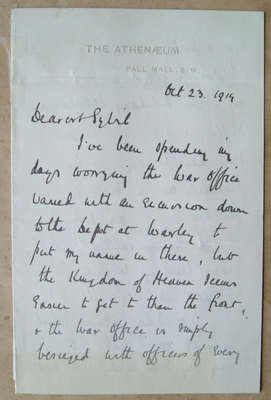 THE ATHENÆUM,
PALL MALL. S. W.
Oct 23. 1914
Dearest Sybil
I've been spending my
days worrying the War Office
varied with an excursion down
to the Depot at Warley to
put my name in there, but
the Kingdom of Heaven seems
easier to get to than the front,
& the War Office is simply
besieged with officers of every